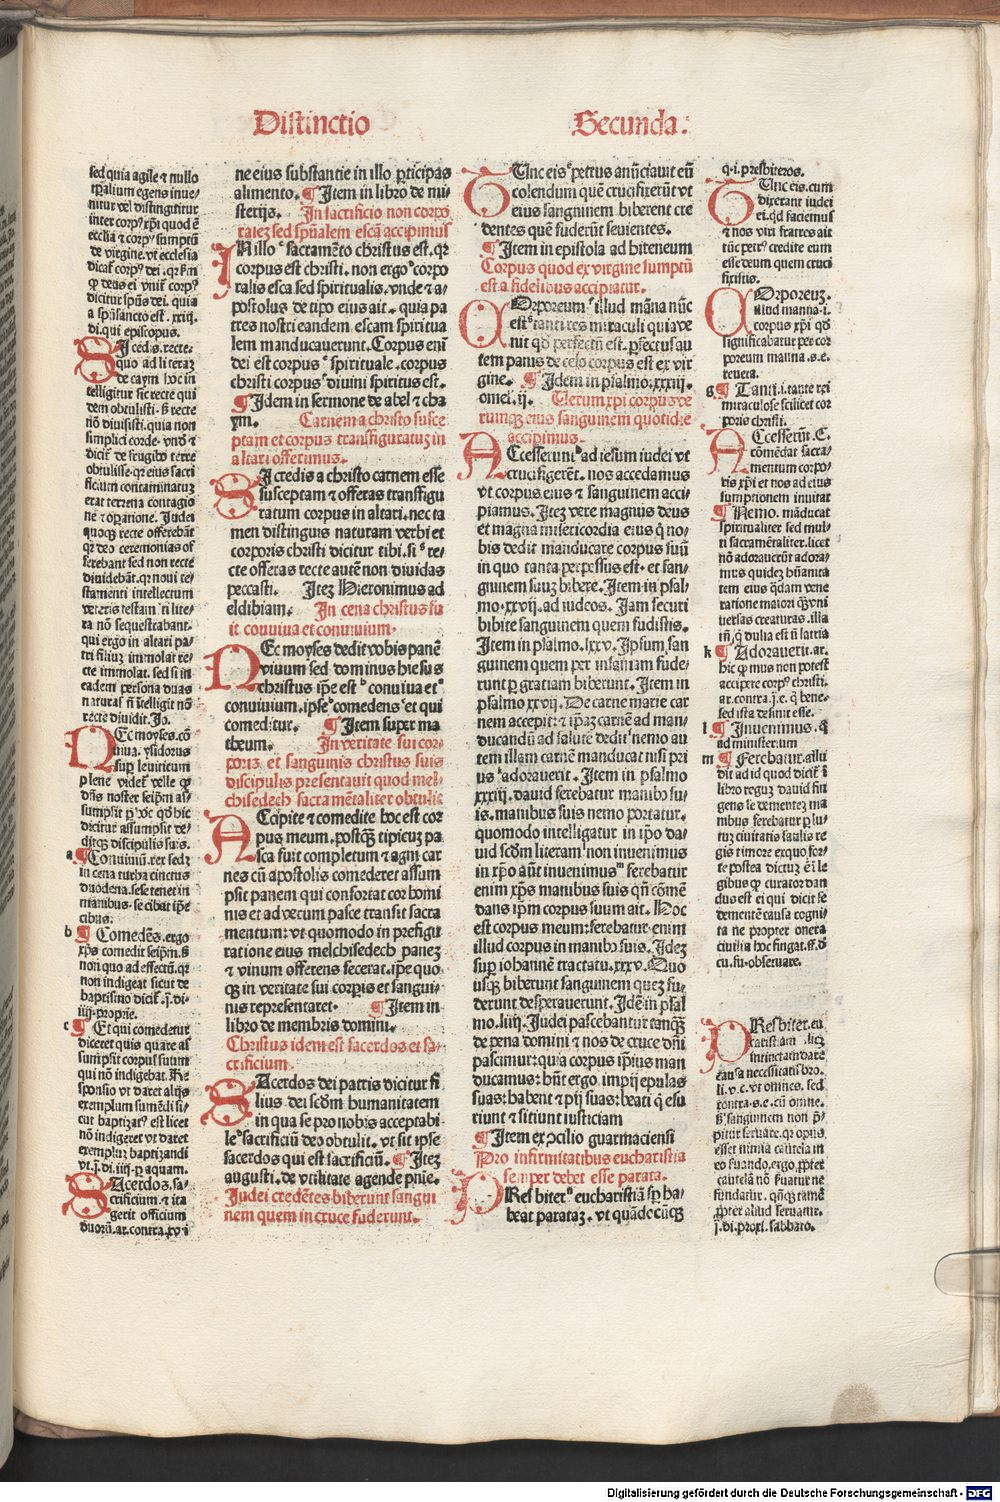 Distinctio
Secunda:
sed quia agile ⁊ nullo
inter corpꝰ xp̄i quod ē
de virgine. vt ecclesia
dicitur sp̄ūs dei. quia
a sp̄ūsancto est. xxiij.
di. qui episcopus.
SI cedis. recte.
quo ad literaz
de caym hoc in
telligitur sic recte qui
dem obtulisti. ß recte
nō diuisisti. quia non
simplici corde. vnd̄ ⁊
obtulisse. qr eius sacri
ficium contaminatuz
erat terrena contagio
ne ⁊ oꝑatione. Judei
quoqꝫ recte offerebāt
qr deo ceremonias of
ferebant sed non recte
diuidebāt. qr noui te-
stamenti intellectum
veteris testam̄ti lite-
ra nō sequestrabant.
qui ergo in altari pa-
tri filiuz immolat re-
cte immolat. sed si in
eadem persona duas
naturas n̄ ītelligit nō
recte diuidit. Jo.
NEc moyses. cō
uiua. ysidorus
suꝑ leuiticum
dn̄s noster seip̄m as-
dicitur assumpsit de-
ditqꝫ discipulis suis.
a ¶ Conuiuiū. rex sedz
in cena turba cinctus
duodena. sese tenet in
manibus. se cibat ip̄e
cibus.
b ¶ Comedēs. ergo
xp̄s comedit seip̄m. ß
non quo ad effectū. qr
non indigeat sicut de
baptismo dicit̄. j̄. di.
iiij. proprie.
c ¶ Et qui comedetur
diceret quis quare as
sumpsit corpus suum
qui nō indigebat. Re
sponsio vt daret alijs
exemplum sumēdi si-
cut baptizatꝰ est licet
nō indigeret vt daret
exempluz baptizandi
vt. j̄. di. iiij. ꝑ aquam.
SAcerdos. sa-
crificium. ⁊ ita
gerit officium
duorū. ar. contra. xvi
ne eius substantie in illo ꝑticipas
alimento. ¶ Item in libro de mi-
sterijs. In sacrificio non corpo
ralez sed sp̄ūalem escā accipimus
IN illo c sacramēto christus est. qr
corpus est christi. non ergo d corpo
ralis esca sed spiritualis. vnde ⁊ a-
postolus de tipo eius ait. quia pa
tres nostri eandem escam spiritua
lem manducauerunt. Corpus eni
dei est corpus e spirituale. corpus
christi corpus f diuini spiritus est.
¶ Idem in sermone de abel ⁊ cha
ym. Carnem a christo susce
ptam et corpus transfiguratuz in
altari offerimus.
SI credis a christo carnem esse
susceptam ⁊ offeras transfigu
ratum corpus in altari. nec ta
men distinguis naturam verbi et
corporis christi dicitur tibi. si g re-
cte offeras recte autē non diuidas
peccasti. Itez Hieronimus ad
eldibiam. In cena christus fu
it conuiua et conuiuium.
NEc moyses dedit vobis panē
viuum sed dominus hiesus
christus ip̄e est h conuiua et a
conuiuium. ipse b comedens c et qui
comeditur. ¶ Item super ma
theum. In veritate sui cor-
poris et sanguinis christus suis
discipulis presentauit quod mel-
chisedech sacramētaliter obtulit
ACcipite ⁊ comedite hoc est cor
pus meum. postqꝫ tipicuz pa
sca fuit completum ⁊ agni car
nes cū apostolis comederet assum
psit panem qui confortat cor homi
nis et ad verum pasce transit sacra
mentum: vt quomodo in prefigu
ratione eius melchisedech panez
⁊ vinum offerens fecerat. ip̄e quo
qꝫ in veritate sui corꝑis et sangui-
nis representaret. ¶ Item in
libro de membris domini.
Christus idem est sacerdos et sa-
crificium.
SAcerdos dei patris dicitur fi
lius dei scd̄m humanitatem
in qua se pro nobis acceptabi
le d sacrificiū deo obtulit. vt sit ipse
sacerdos qui est sacrificiū. ¶ Itez
augusti. de vtilitate agende pn̄ie.
Judei credētes biberunt sangui
nem quem in cruce fuderunt.
TUnc eis e petrus anūciauit eū
colendum quē crucifixerūt vt
eius sanguinem biberent cre
dentes quē fuderūt seuientes.
¶ Item in epistola ad hireneum
Corpus quod ex virgine sumptū
est a fidelibus accipiatur.
COrporeum f illud māna nūc
est g tanti res miraculi quia ve
nit qd̄ perfectū est. ꝑfectus au
tem panis de celo corpus est ex vir
gine. ¶ Idem in psalmo. xxxiij.
omei. ij. Uerum xpi corpus ve
rumqꝫ eius sanguinem quotidie
accipimus.
ACcesserunt h ad iesum iudei vt
crucifigerēt. nos accedamus
vt corpus eius ⁊ sanguinem acci-
piamus. Itez vere magnus deus
et magna misericordia eius q̄ no-
bis dedit manducare corpus suū
in quo tanta perpessus est. et san-
guinem suuz bibere. Item in psal-
mo. xxvij. ad iudeos. Jam securi
bibite sanguinem quem fudistis.
Item in psalmo. lxv. Ipsum san
guinem quem per insaniam fude-
runt ꝑ gratiam biberunt. Item in
psalmo xxvij. De carne marie car
nem accepit: ⁊ ip̄az carnē ad man-
ducandū ad salutē dedit i nemo au
tem illam carnē manducat nisi pri
us k adorauerit. Item in psalmo
xxxiij. dauid ferebatur manibꝰ su-
is. manibus suis nemo portatur.
quomodo intelligatur in ip̄o da-
uid scd̄m literam l non inuenimus
in xp̄o aūt inuenimus m ferebatur
enim xp̄s manibus suis qn̄ cōmē
dans ip̄m corpus suum ait. Hoc
est corpus meum: ferebatur enim
illud corpus in manibꝰ suis. Idez
suꝑ iohannē tractatu. xxxv. Quo
usqꝫ biberunt sanguinem quez fu-
derunt desperauerunt. Idē in psal
mo. liiij. Judei pascebantur tanqꝫ
de pena domini ⁊ nos de cruce dn̄i
pascimur: quia corpus ip̄ius man
ducamus: hūt ergo impij epulas
suas: habent ⁊ pij suas: beati q̄ esu
riunt ⁊ sitiunt iusticiam
¶ Item ex ꝯcilio guarmaciensi
Pro infirmitatibus eucharistia
semper debet esse parata.
PResbiter n eucharistiā sꝑ ha-
beat parataz. vt quādocūqꝫ
q. i. presbiteros.
TUnc eis. cum
dixerant iudei
ei. qd̄ faciemus
⁊ nos viri fratres ait
tūc petrꝰ credite eum
esse deum quem cruci
fixistis.
COrporeuz.
illud manna. i.
corpus xp̄i qd̄
significabatur per cor
poreum manna. s. e.
reuera.
g ¶ Tanti. i. tante rei
miraculose scilicet cor
poris christi.
ACcesserūt. E.
cōmēdat sacra-
mentum corpo-
ris xp̄i et nos ad eius
sumptionem inuitat
¶ Nemo. māducat
spiritualiter. licet mul-
ti sacramētaliter. licet
nō adorauerūt adora-
mus quidez hūanita
tem eius qd̄am vene
ratione maiori qꝫ vni
uersas creaturas. illa
k ¶ Adorauerit. ar.
accipere corpꝰ christi.
sed ista desinit esse.
l ¶ Inuenimus. q̄
ad ministerium
m ¶ Ferebatur. allu
dit ad id quod dicit̄ ī
libro reguz dauid fin
gens se dementez ma
nibus ferebatur ꝑ lu-
tuz ciuitatis saulis re
gis timore ex quo for-
te postea dictuz ē ī le
gibus qꝫ curator dan
dus est ei qui dicit se
dementē causa cogni-
ta ne propter onera
ciuilia hoc fingat. ff. d̄
cu. fu. obseruare.
PResbiter. eu
caristiam. licz
causa necessitatis
li. v. c. vt omnes. sed
contra. s. e. cū omne.
ß sanguinem non p̄-
cautelā nō seruatur ne
fundatur. qn̄qꝫ tamē
ꝓpter aliud seruatur.
j̄. di. proxi. sabbato.
Digitalisierung gefördert durch die Deutsche Forschungsgemeinschaft - DFG